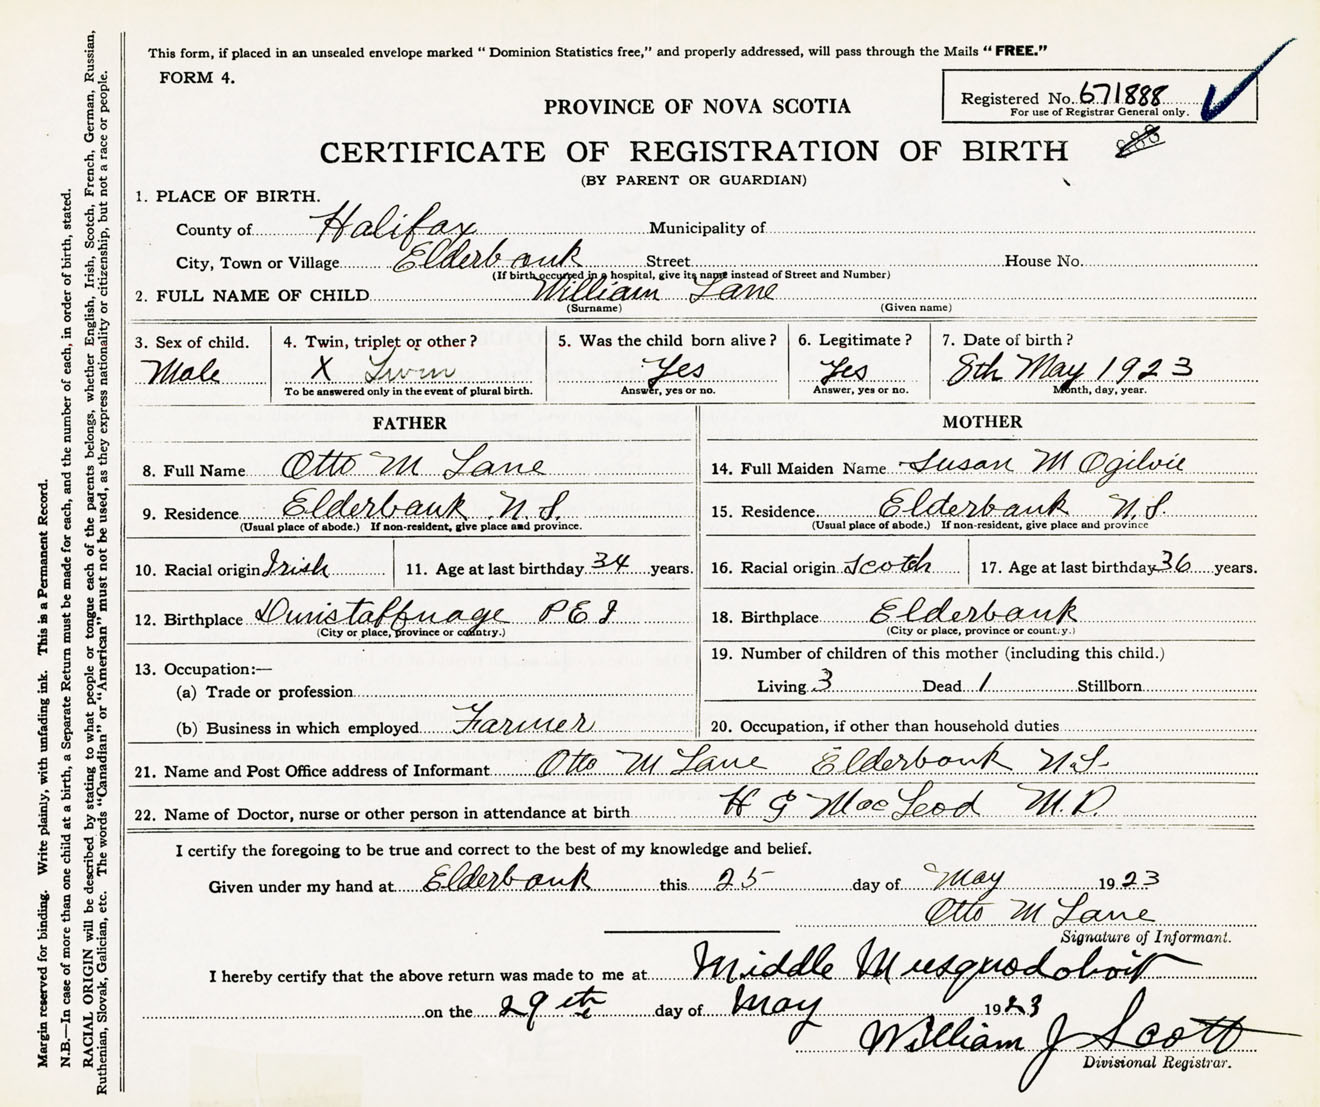 This form, if placed in an unsealed envelope marked “ Dominion Statistics free,” and properly addressed, will pass through the Mails “ FREE.”
FORM 4.
Registered No. 671888
For use of Registrar General only.
PROVINCE OF NOVA SCOTIA
CERTIFICATE OF REGISTRATION OF BIRTH
(BY PARENT OR GUARDIAN)
1. PLACE OF BIRTH.
County of Halifax Municipality of
City, Town or Village Elderbank Street House No.
(If birth occurred in a hospital, give its name instead of Street and Number)
2. FULL NAME OF CHILD William Lane
(Surname) (Given name)
3. Sex of child. 4. Twin, triplet or other ? 5. Was the child born alive ? 6. Legitimate ? 7. Date of birth ?
Male X Twin Yes Yes 8th May 1923
To be answered only in the event of plural birth. Answer, yes or no. Answer, yes or no. Month, day, year.
FATHER
8. Full Name Otto M Lane
9. Residence Elderbank N.S.
(Usual place of abode.) If non-resident, give place and province.
10. Racial origin Irish 11. Age at last birthday 34 years.
12. Birthplace Dunstaffnage P E I
(City or place, province or country.)
13. Occupation:—
(a) Trade or profession
(b) Business in which employed Farmer
MOTHER
14. Full Maiden Name Susan M Ogilvie
15. Residence. Elderbank N.S.
(Usual place of abode.) If non-resident, give place and province
16. Racial origin Scotch 17. Age at last birthday 36 years.
18. Birthplace Elderbank
(City or place, province or country.)
19. Number of children of this mother (including this child.)
Living 3 Dead 1 Stillborn
20. Occupation, if other than household duties
21. Name and Post Office address of Informant Otto M Lane Elderbank N.S.
22. Name of Doctor, nurse or other person in attendance at birth H G MacLeod M.D.
I certify the foregoing to be true and correct to the best of my knowledge and belief.
Given under my hand at Elderbank this 25 day of May 1923
Otto M Lane
Signature of Informant.
I hereby certify that the above return was made to me at Middle Musquodoboit
on the 29th day of May 1923
William J Scott
Divisional Registrar.
Margin reserved for binding. Write plainly, with unfading ink. This is a Permanent Record.
N.B.—In case of more than one child at a birth, a Separate Return must be made for each, and the number of each, in order of birth, stated.
RACIAL ORIGIN will be described by stating to what people or tongue each of the parents belongs, whether English, Irish, Scotch, French, German, Russian,
Ruthenian, Slovak, Galician, etc. The words “Canadian” or “American” must not be used, as they express nationality or citizenship, but not a race or people.